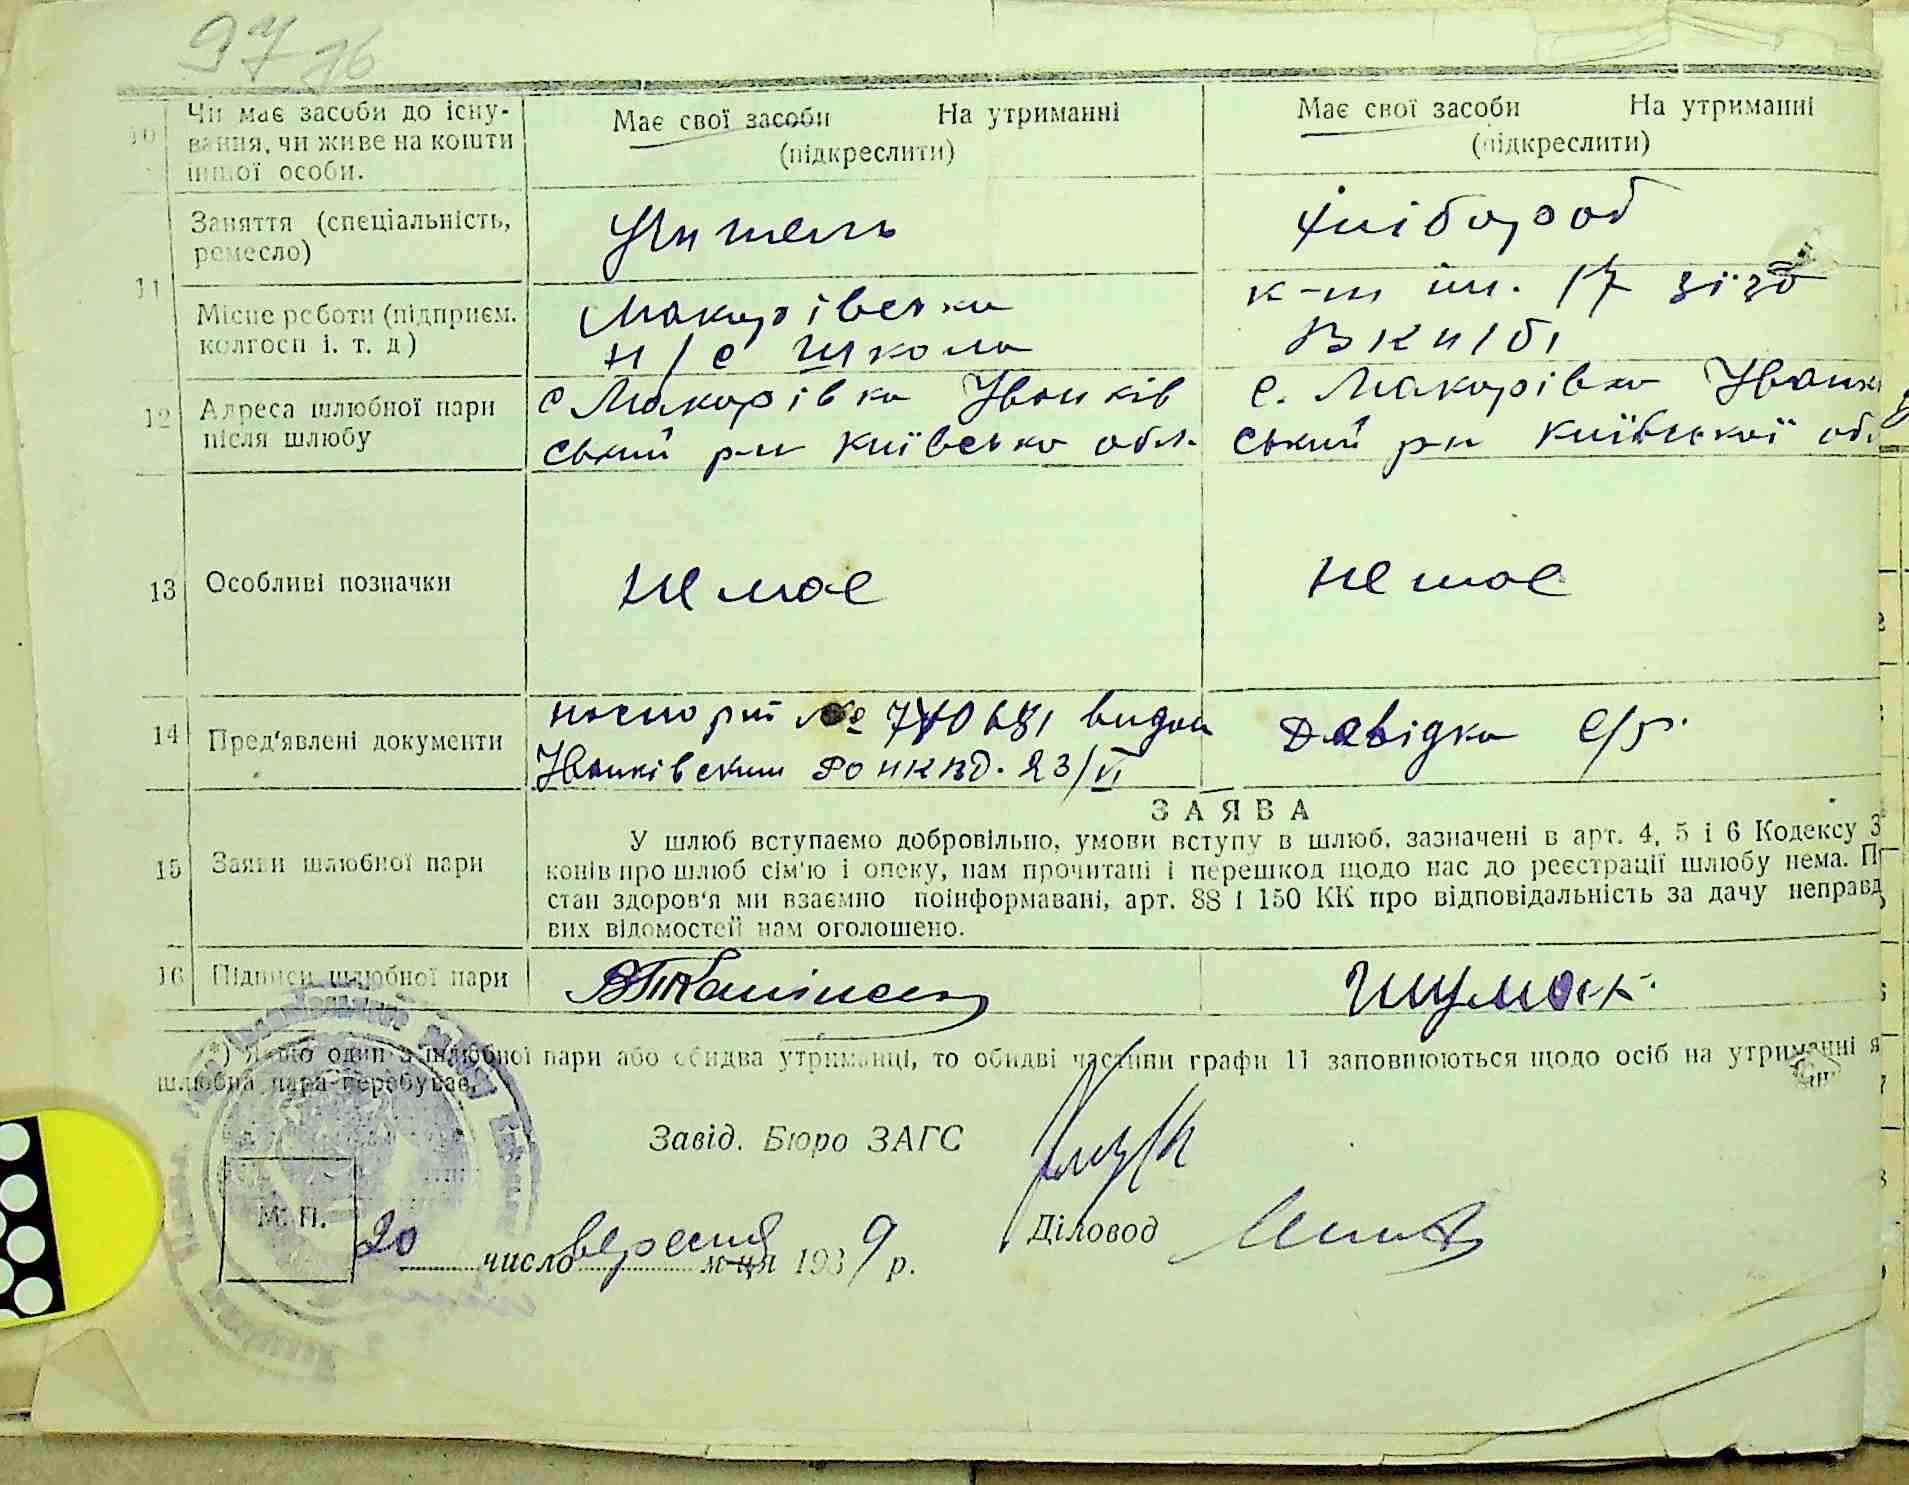 97 76
10 Чи має засоби до існу-
вання, чи живе на кошти
іншої особи.
Має свої засоби На утриманні
(підкреслити)
Має свої засоби На утриманні
(підкреслити)
11 Заняття (спеціальність,
ремесло)
Учитель
Хлібороб
Місце роботи (підприєм.
колгосп і. т. д)
Макарівська
н/с школа
к-т ім. 17 зїзд
ВКП/б/
12 Адреса шлюбної пари
після шлюбу
с Макарівка Іванків
ський р-н Київсько обл.
с. Макарівка Іванк
ський р-н Київської обл
13 Особливі позначки
не має
не має
14 Пред'явлені документи
паспорт № видан
Іванківским РО НКВД. 23/VI
Довідка с/р.
15 Заяви шлюбної пари
ЗАЯВА
У шлюб вступаємо добровільно, умови вступу в шлюб, зазначені в арт. 4, 5 і 6 Кодексу З
конів про шлюб сім'ю і опеку, нам прочитані і перешкод щодо нас до реєстрації шлюбу нема. П
стан здоров'я ми взаємно поінформавані, арт. 88 і 150 КК про відповідальність за дачу неправд
вих відомостей нам оголошено.
16 Підписи шлюбної пари
*) Якщо один з шлюбної пари або обидва утриманці, то обидві частини графи 11 заповнюються щодо осіб на утриманні я
шлюбна пара перебуває.
Завід. Бюро ЗАГС
М. П.
20 число вересня м-ця 1939 р.
Діловод